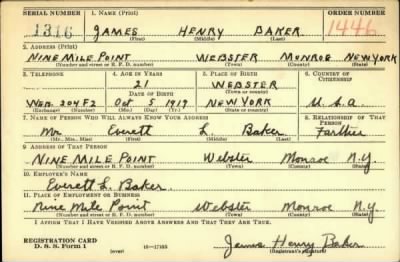 SERIAL NUMBER 1. NAME (Print) ORDER NUMBER
1316 JAMES HENRY BAKER 1446
(First) (Middle) (Last)
2. ADDRESS (Print)
NINE MILE POINT WEBSTER MONROE NEW YORK
(Number and street or R. F. D. number) (Town) (County) (State)
3. TELEPHONE 4. AGE IN YEARS 5. PLACE OF BIRTH 6. COUNTRY OF CITIZENSHIP
21 WEBSTER
DATE OF BIRTH (Town or county)
WEB. 204F2 OCT 5 1919 NEW YORK U.S.A.
(Exchange) (Number) (Mo.) (Day) (Yr.) (State or country)
7. NAME OF PERSON WHO WILL ALWAYS KNOW YOUR ADDRESS 8. RELATIONSHIP OF THAT PERSON
Mr. Everett L. Baker Father
(Mr., Mrs., Miss) (First) (Middle) (Last)
9. ADDRESS OF THAT PERSON
NINE MILE POINT Webster Monroe N.Y.
(Number and street or R. F. D. number) (Town) (County) (State)
10. EMPLOYER'S NAME
Everett L. Baker.
11. PLACE OF EMPLOYMENT OR BUSINESS
Nine Mile Point Webster Monroe N.Y.
(Number and street or R. F. D. number) (Town) (County) (State)
I AFFIRM THAT I HAVE VERIFIED ABOVE ANSWERS AND THAT THEY ARE TRUE.
REGISTRATION CARD
D. S. S. Form 1 (over) 16-17105 James Henry Baker
(Registrant's signature)